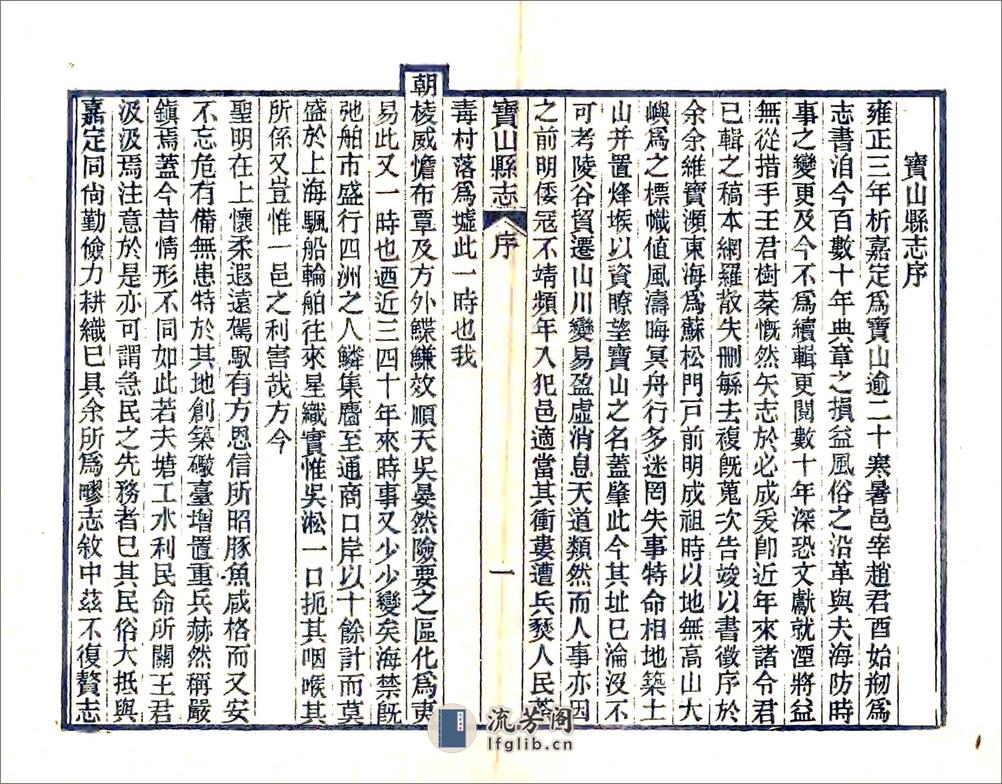 寶山縣志序
雍正三年析嘉定爲寶山逾二十寒暑邑宰趙君酉始剏爲
志書洎今百數十年典章之損益風俗之沿革與夫海防時
事之變更及今不爲續輯更閱數十年深恐文獻就湮將益
無從措手王君樹棻慨然矢志於必成爰卽近年來諸令君
已輯之稿本網羅散失刪緐去複旣蒐次告竣以書徵序於
余余維寶瀕東海爲蘇松門戸前明成祖時以地無高山大
嶼爲之標幟値風濤晦冥舟行多迷罔失事特命相地築土
山并置烽堠以資瞭望寶山之名蓋肇此今其址已淪沒不
可考陵谷貿遷山川變易盈虛消息天道類然而人事亦因
之前明倭冦不靖頻年入犯邑適當其衝婁遭兵燹人民荼
寶山縣志
序
一
毒村落爲墟此一時也我
朝棱威憺布覃及方外鰈鰜效順天吳晏然險要之區化爲夷
易此又一時也迺近三四十年來時事又少少變矣海禁旣
弛舶市盛行四洲之人鱗集麕至通商口岸以十餘計而莫
盛於上海颿船輪舶往來星織實惟吳淞一口扼其咽喉其
所係又豈惟一邑之利害哉方今
聖明在上懷柔遐遠駕馭有方恩信所昭豚魚咸格而又安
不忘危有備無患特於其地創築礮臺增置重兵赫然稱嚴
鎭焉蓋今昔情形不同如此若夫塘工水利民命所關王君
汲汲焉注意於是亦可謂急民之先務者已其民俗大抵與
嘉定同尙勤儉力耕織已具余所爲疁志敘中茲不復贅志
流芳阁
lfglib.cn